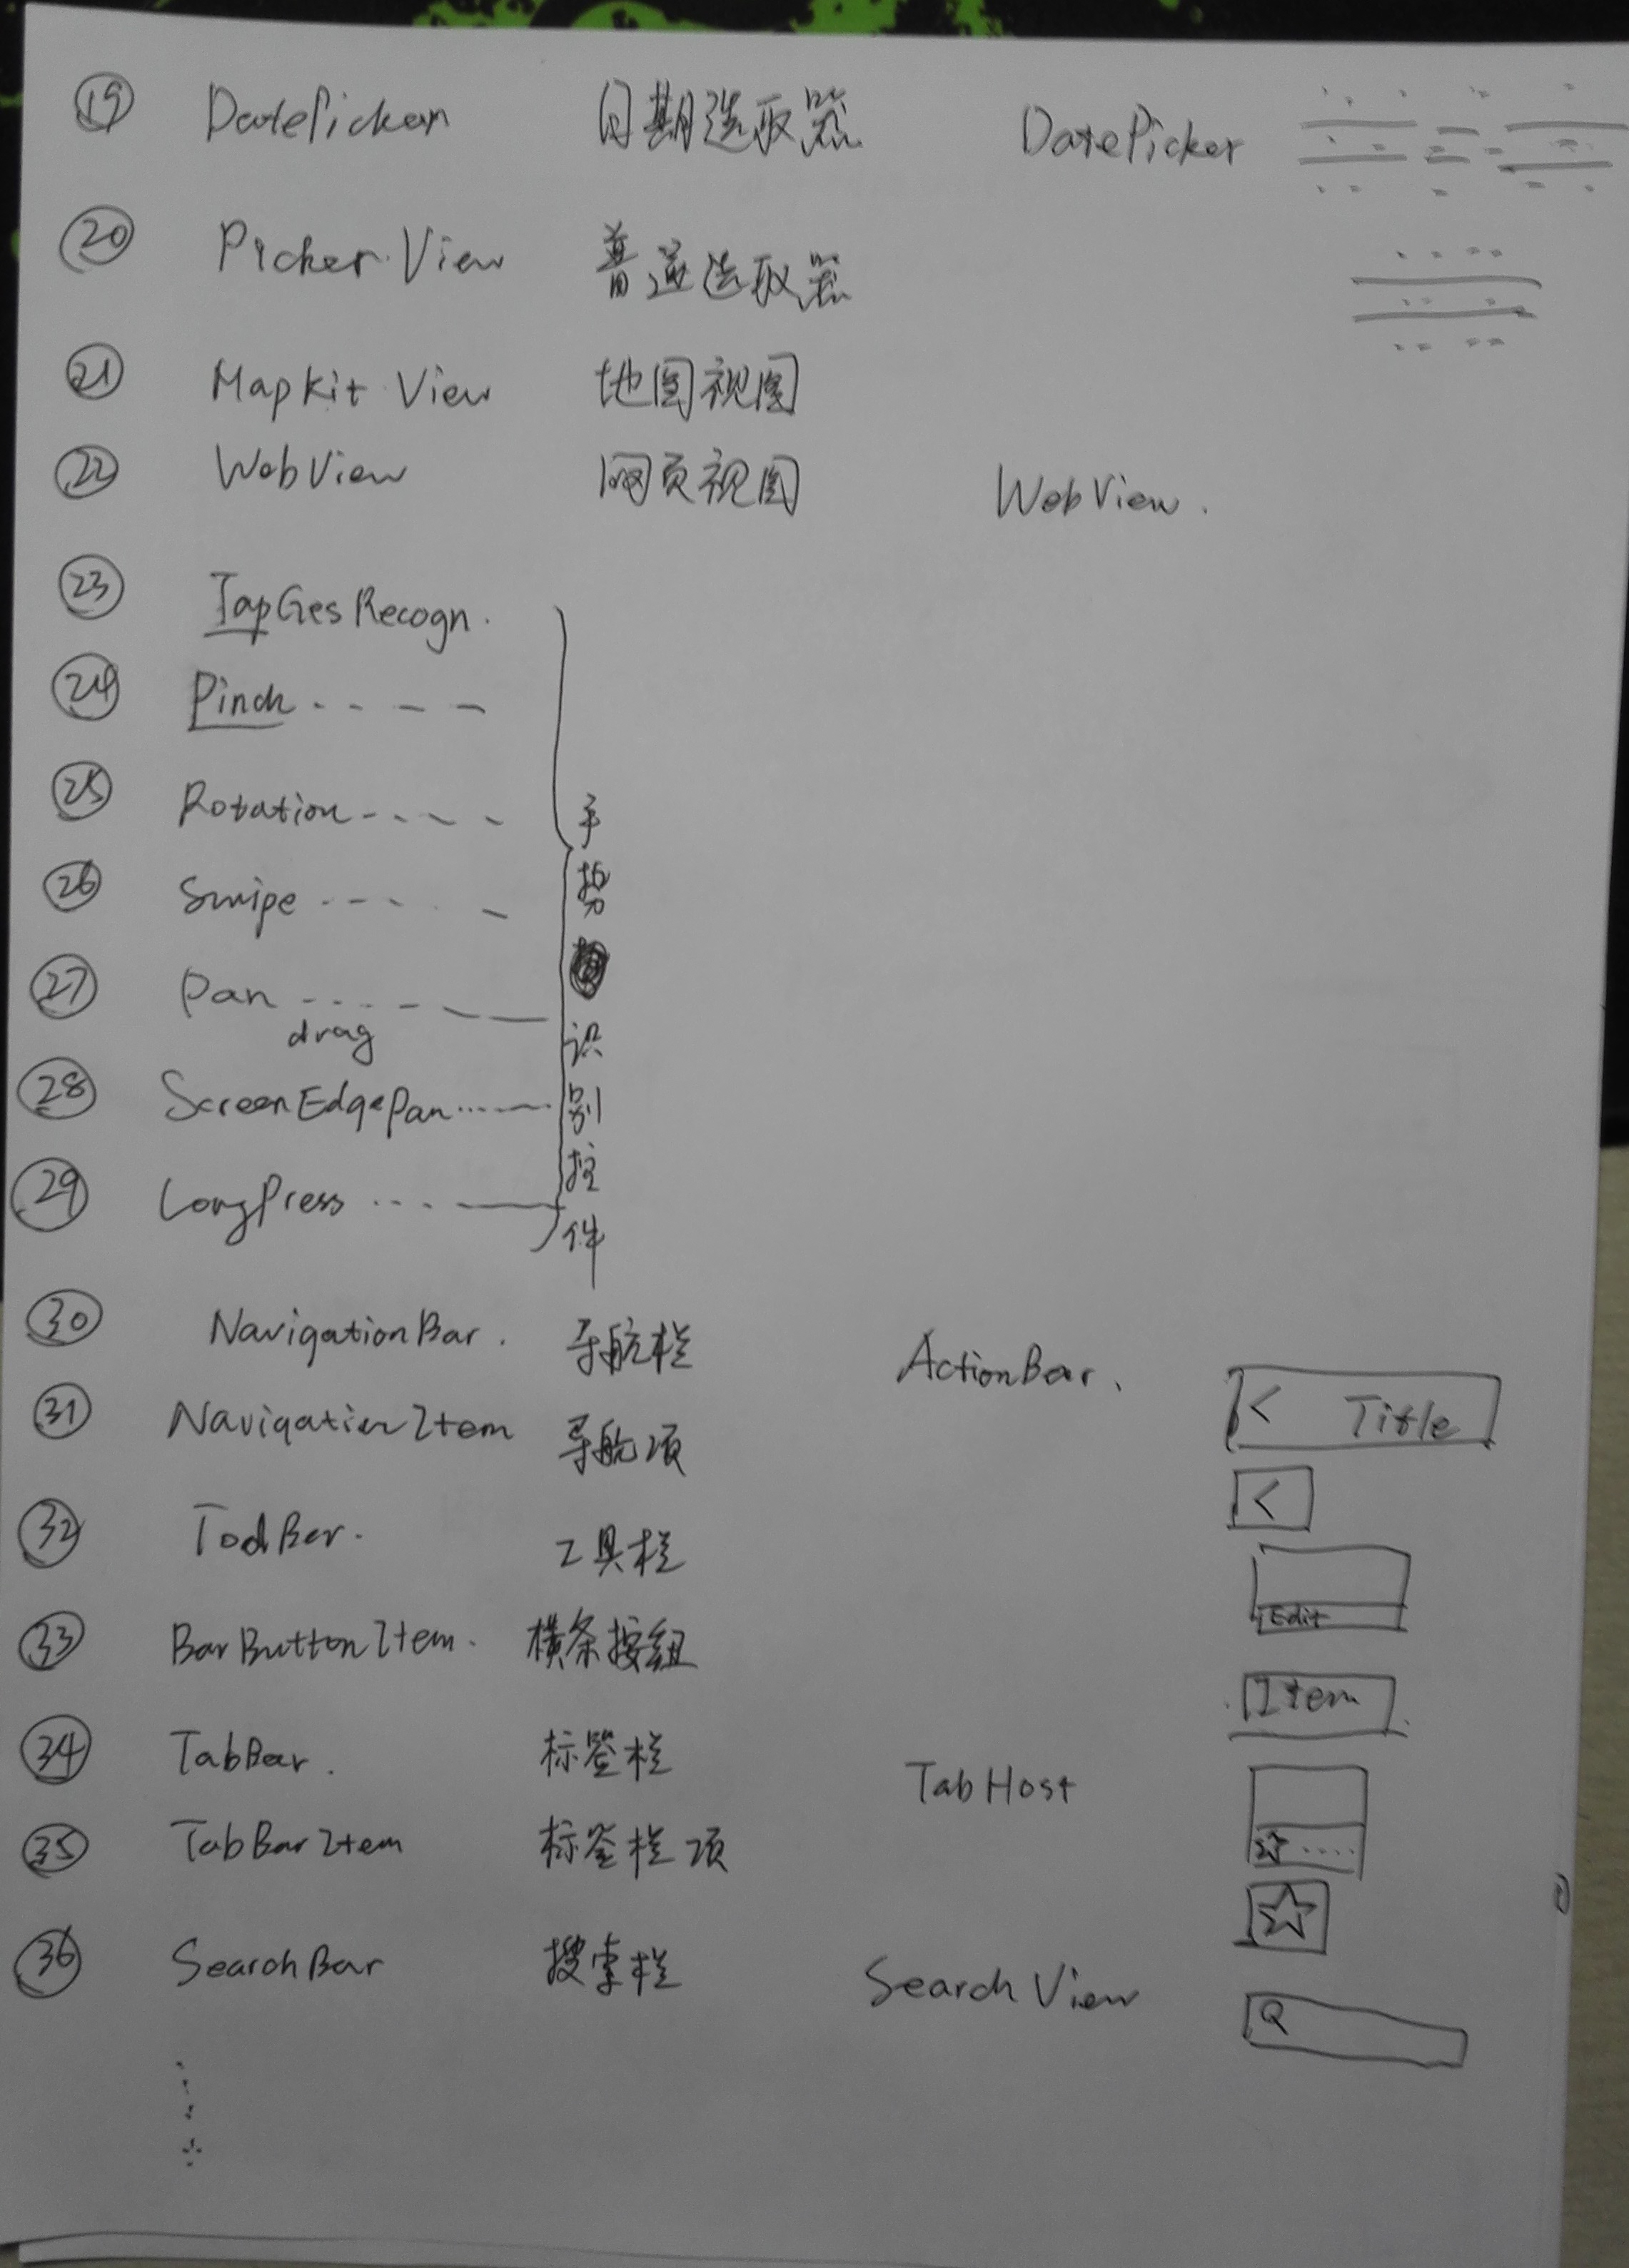 19 DatePicker 日期选取器 DatePicker
20 Picker View 普通选取器
21 MapKit View 地图视图
22 WebView 网页视图 WebView.
23 TapGesRecogn.
24 Pinch
25 Rotation
26 Swipe
27 Pan
drag
28 ScreenEdgePan
29 LongPress
手势识别控件
30 NavigationBar. 导航栏 ActionBar. < Title
31 NavigationItem 导航项 <
32 ToolBar. 工具栏 Edit
33 BarButtonItem. 横条按纽 Item
34 TabBar. 标签栏 TabHost
35 TabBarItem 标签栏项
36 SearchBar 搜索栏 SearchView Q